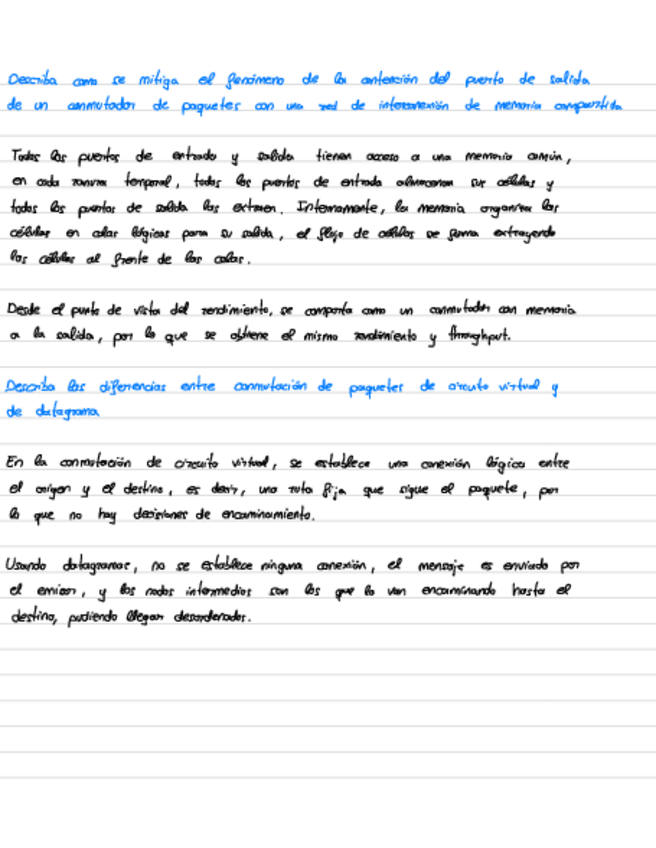 Describa como se mitiga el fenómeno de la contención del puerto de salida
de un conmutador de paquetes con una red de interconexión de memoria compartida
Todos los puertos de entrada y salida tienen acceso a una memoria común,
en cada ranura temporal, todos los puertos de entrada almacenan sus células y
todos los puertos de salida las extraen. Internamente, la memoria organiza las
células en colas lógicas para su salida, el flujo de células se forma extrayendo
las células al frente de las colas.
Desde el punto de vista del rendimiento, se comporta como un conmutador con memoria
a la salida, por lo que se obtiene el mismo rendimiento y throughput.
Describa las diferencias entre conmutación de paquetes de circuito virtual y
de datagrama
En la conmutación de circuito virtual, se establece una conexión lógica entre
el origen y el destino, es decir, una ruta fija que sigue el paquete, por
lo que no hay decisiones de encaminamiento.
Usando datagramas, no se establece ninguna conexión, el mensaje es enviado por
el emisor, y los nodos intermedios son los que lo van encaminando hasta el
destino, pudiendo llegar desordenados.